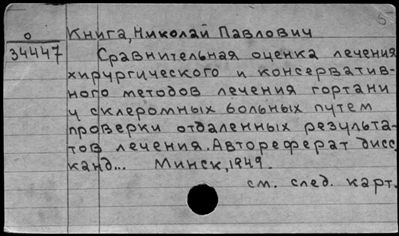 5
О Книга, Николай Павлович
34447 Сравнительная оценка лечения
хирургического и консерватив-
ного методов лечения гортани
у склеромных больных путем
проверки отдаленных результа-
тов лечения. Автореферат дисс.
канд... Минск, 1949.
см. след. карт.